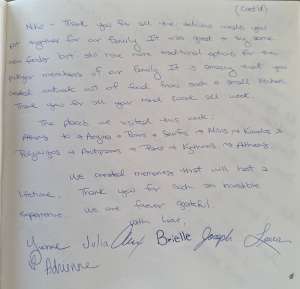 (Cont'd)
Niko - Thank you for all the delicious meals you
put together for our family. It was great to try some
new foods but also have more traditional options for the
younger members of our family. It is amazing that you
created such of food from such a small kitchen.
Thank you for all your hard work all week.
The places we visited this week:
Athens to → Aegina → Poros → → Milos → Kimolos →
Polyaigos → Antiparos → Paros → Kythnos → Athens.
We created memories that will last a
lifetime. Thank you for such an incredible
experience. We are forever grateful.
With love,
Yvonne Julia Alex Brielle Joseph Laura
Adrienne